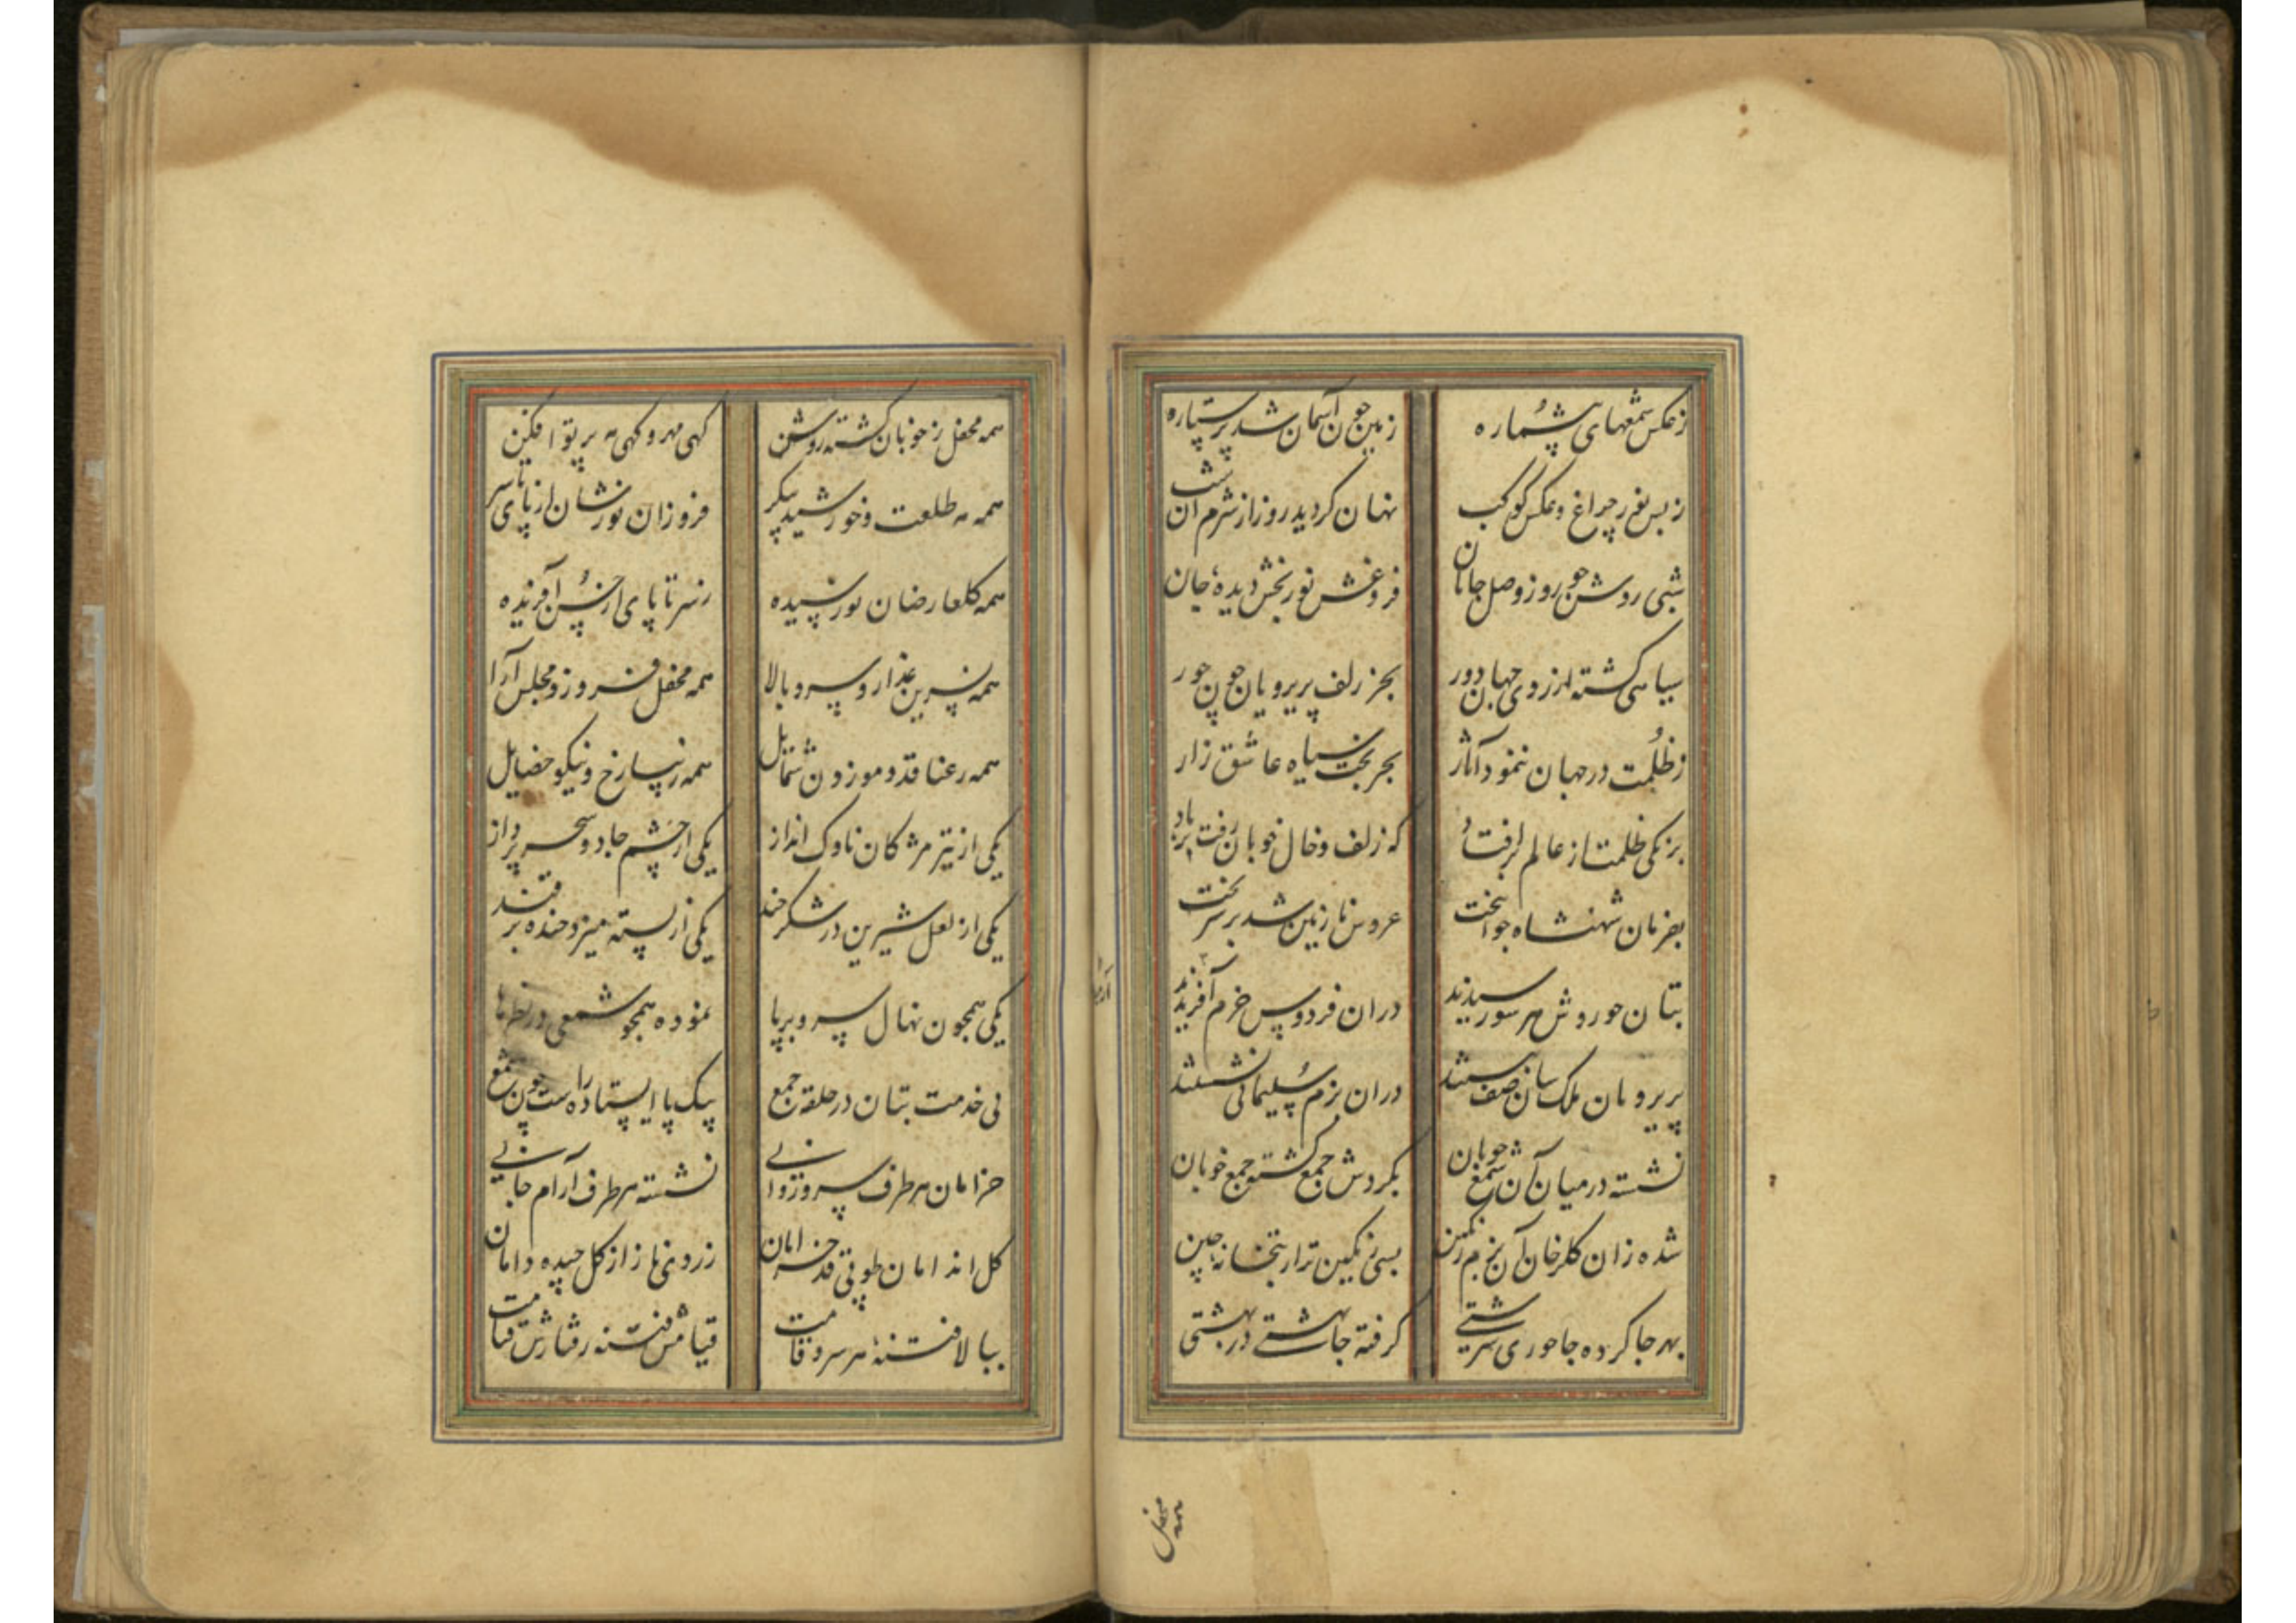 زعکس شمعهای بیشماره زمین چون آسمان شد پر ستاره
زبس نور چراغ و عکس کوکب نهان کردید روز از شرم آن شب
شبی روشن چو روز وصل جانان فروغش نور بخش دیدهٔ جان
سیاهی کشته از روی جهان دور بجز زلف پریرویان چون حور
زظلمت در جهان ننمود آثار بجز بخت سیاه عاشق زار
بزنکی ظلمت از عالم بر افتاد که زلف و خال خوبان رفت بر باد
بفرمان شهنشاه جوانبخت عروس نازنین شد بر سر تخت
بتان حوروش هر سو رسیدند در ان فردوس خرم آفریدند
پریرویان ملک سان صف ببستند در ان بزم سلیمانی نشستند
نشسته در میان آن شمع خوبان بکردش جمع کشته جمع خوبان
شده زان کلرخان آن بزم رنکین بسی رنکین تر از بتخانهٔ چین
بهر جا کرده جا حوری سرشتی کرفته جا بهشتی در بهشتی
همه محفل
همه محفل ز خوبان کشته روشن کهی مهر و کهی مه پرتو افکن
همه مه طلعت و خورشید پیکر فروزان نورشان از پای تا سر
همه کلعارضان نورسیده ز سر تا پای از حسن آفریده
همه نسرین عذار و سرو بالا همه محفل فروز و مجلس آرا
همه رعنا قد و موزون شمایل همه زیبا رخ و نیکو خصایل
یکی از تیر مژکان ناوک انداز یکی از چشم جادو سحر پرداز
یکی از لعل شیرین در شکر خند یکی از پسته میزد خنده بر قند
یکی همچون نهال سرو بر پا نموده همچو شمعی در نظرها
پی خدمت بتان در حلقه جمع بیک پا ایستاده راست چون شمع
خرامان هر طرف سرو روانی نشسته هر طرف آرام جانی
کل اندامان طوبی قد خرامان ز روی ناز از کل چیده دامان
ببالا فتنهٔ هر سرو قامت قیامش فتنه رفتارش قیامت